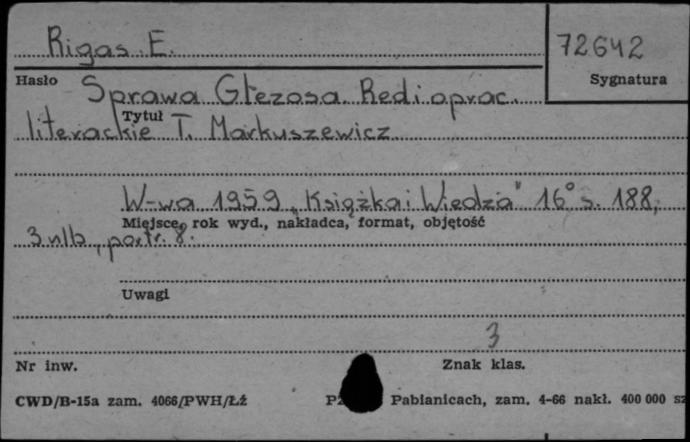 Rigas E.
72642
Hasło
Sygnatura
Sprawa Glezosa. Red. i oprac.
Tytuł
literackie T. Markuszewicz
W-wa 1959 „Książka i Wiedza" 16° s. 188,
Miejsce, rok wyd., nakładca, format, objętość
3 nlb., portr. 8.
Uwagi
3
Nr inw.
Znak klas.
CWD/B-15a zam. 4066/PWH/Łź
Pabianicach, zam. 4-66 nakł. 400 000 sz